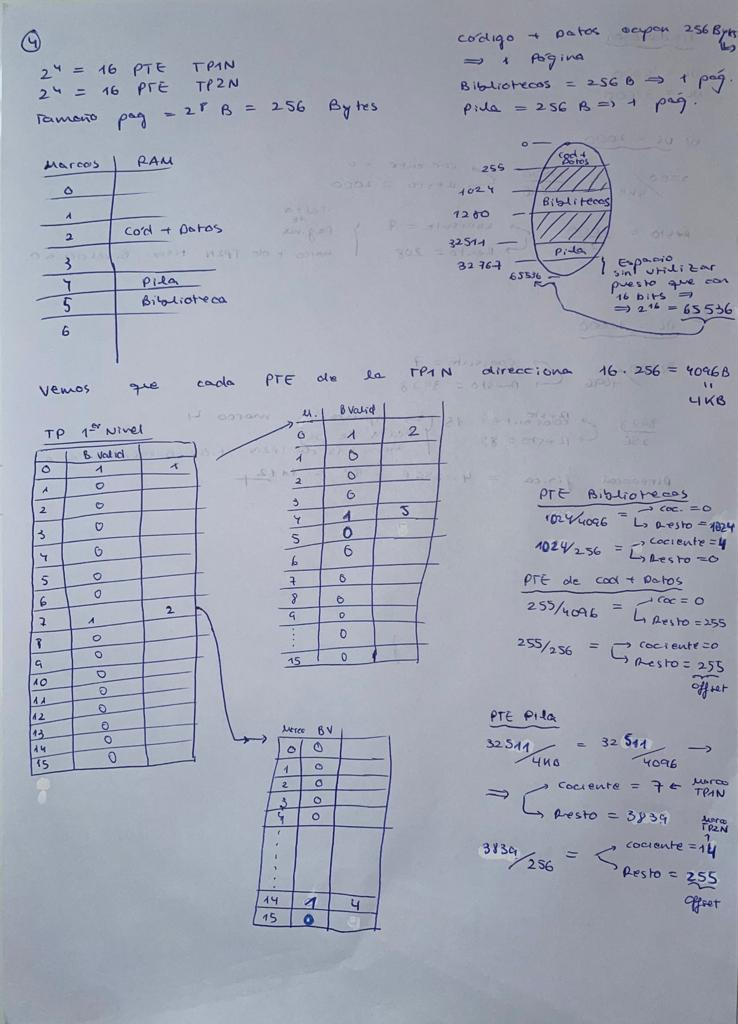 4
2⁴ = 16 PTE TP1N
2⁴ = 16 PTE TP2N
Tamaño pag = 2⁸ B = 256 Bytes
Código + Datos ocupan 256 Bytes
⇒ 1 Página
Bibliotecas = 256 B ⇒ 1 pág.
Pila = 256 B ⇒ 1 pág.
Marcos RAM
0
1
2 Cód + Datos
3
4 Pila
5 Biblioteca
6
0 Cod + Datos
255
1024 Bibliotecas
1280
32511 Pila
32767
65536
Espacio
sin utilizar
puesto que con
16 bits ⇒
⇒ 2¹⁶ = 65536
Vemos que cada PTE de la TP1N direcciona 16 · 256 = 4096B
=
4KB
TP 1er Nivel
B Valid
0 1 1
1 0
2 0
3 0
4 0
5 0
6 0
7 1 2
8 0
9 0
10 0
11 0
12 0
13 0
14 0
15 0
M. B Valid
0 1 2
1 0
2 0
3 0
4 1 5
5 0
6 0
7 0
8 0
9 0
0
15 0
Marco BV
0 0
1 0
2 0
3 0
4 0
14 1 4
15 0
PTE Bibliotecas
1024/4096 = → coc. = 0
↳ Resto = 1024
1024/256 = → Cociente = 4
↳ Resto = 0
PTE de Cod + Datos
255/4096 = → coc = 0
↳ Resto = 255
255/256 = → Cociente = 0
↳ Resto = 255
offset
PTE Pila
32511/4KB = 32511/4096 →
⇒ Cociente = 7 ← Marco TP1N
Resto = 3839
Marco
TP2N
↑
3839/256 = cociente = 14
Resto = 255
offset